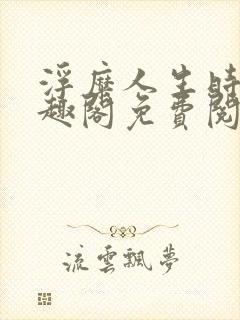 浮靡人生時
趣閣免費閱
流雲飄夢